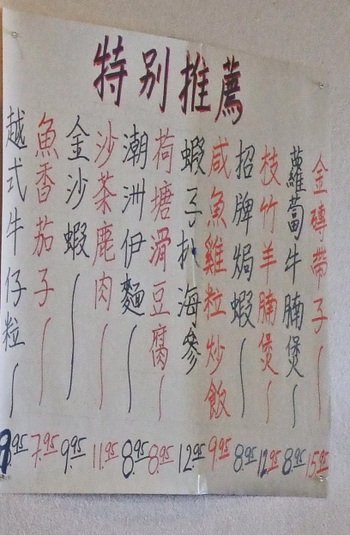 特別推薦
金磚帶子 15.95
蘿蔔牛腩煲 8.95
枝竹羊腩煲 12.95
招牌焗蝦 8.95
咸魚雞粒炒飯 9.95
蝦子扒海參 12.95
荷塘滑豆腐 8.95
潮洲伊麵 8.95
沙茶鹿肉 11.95
金沙蝦 9.95
魚香茄子 7.95
越式牛仔粒 8.95